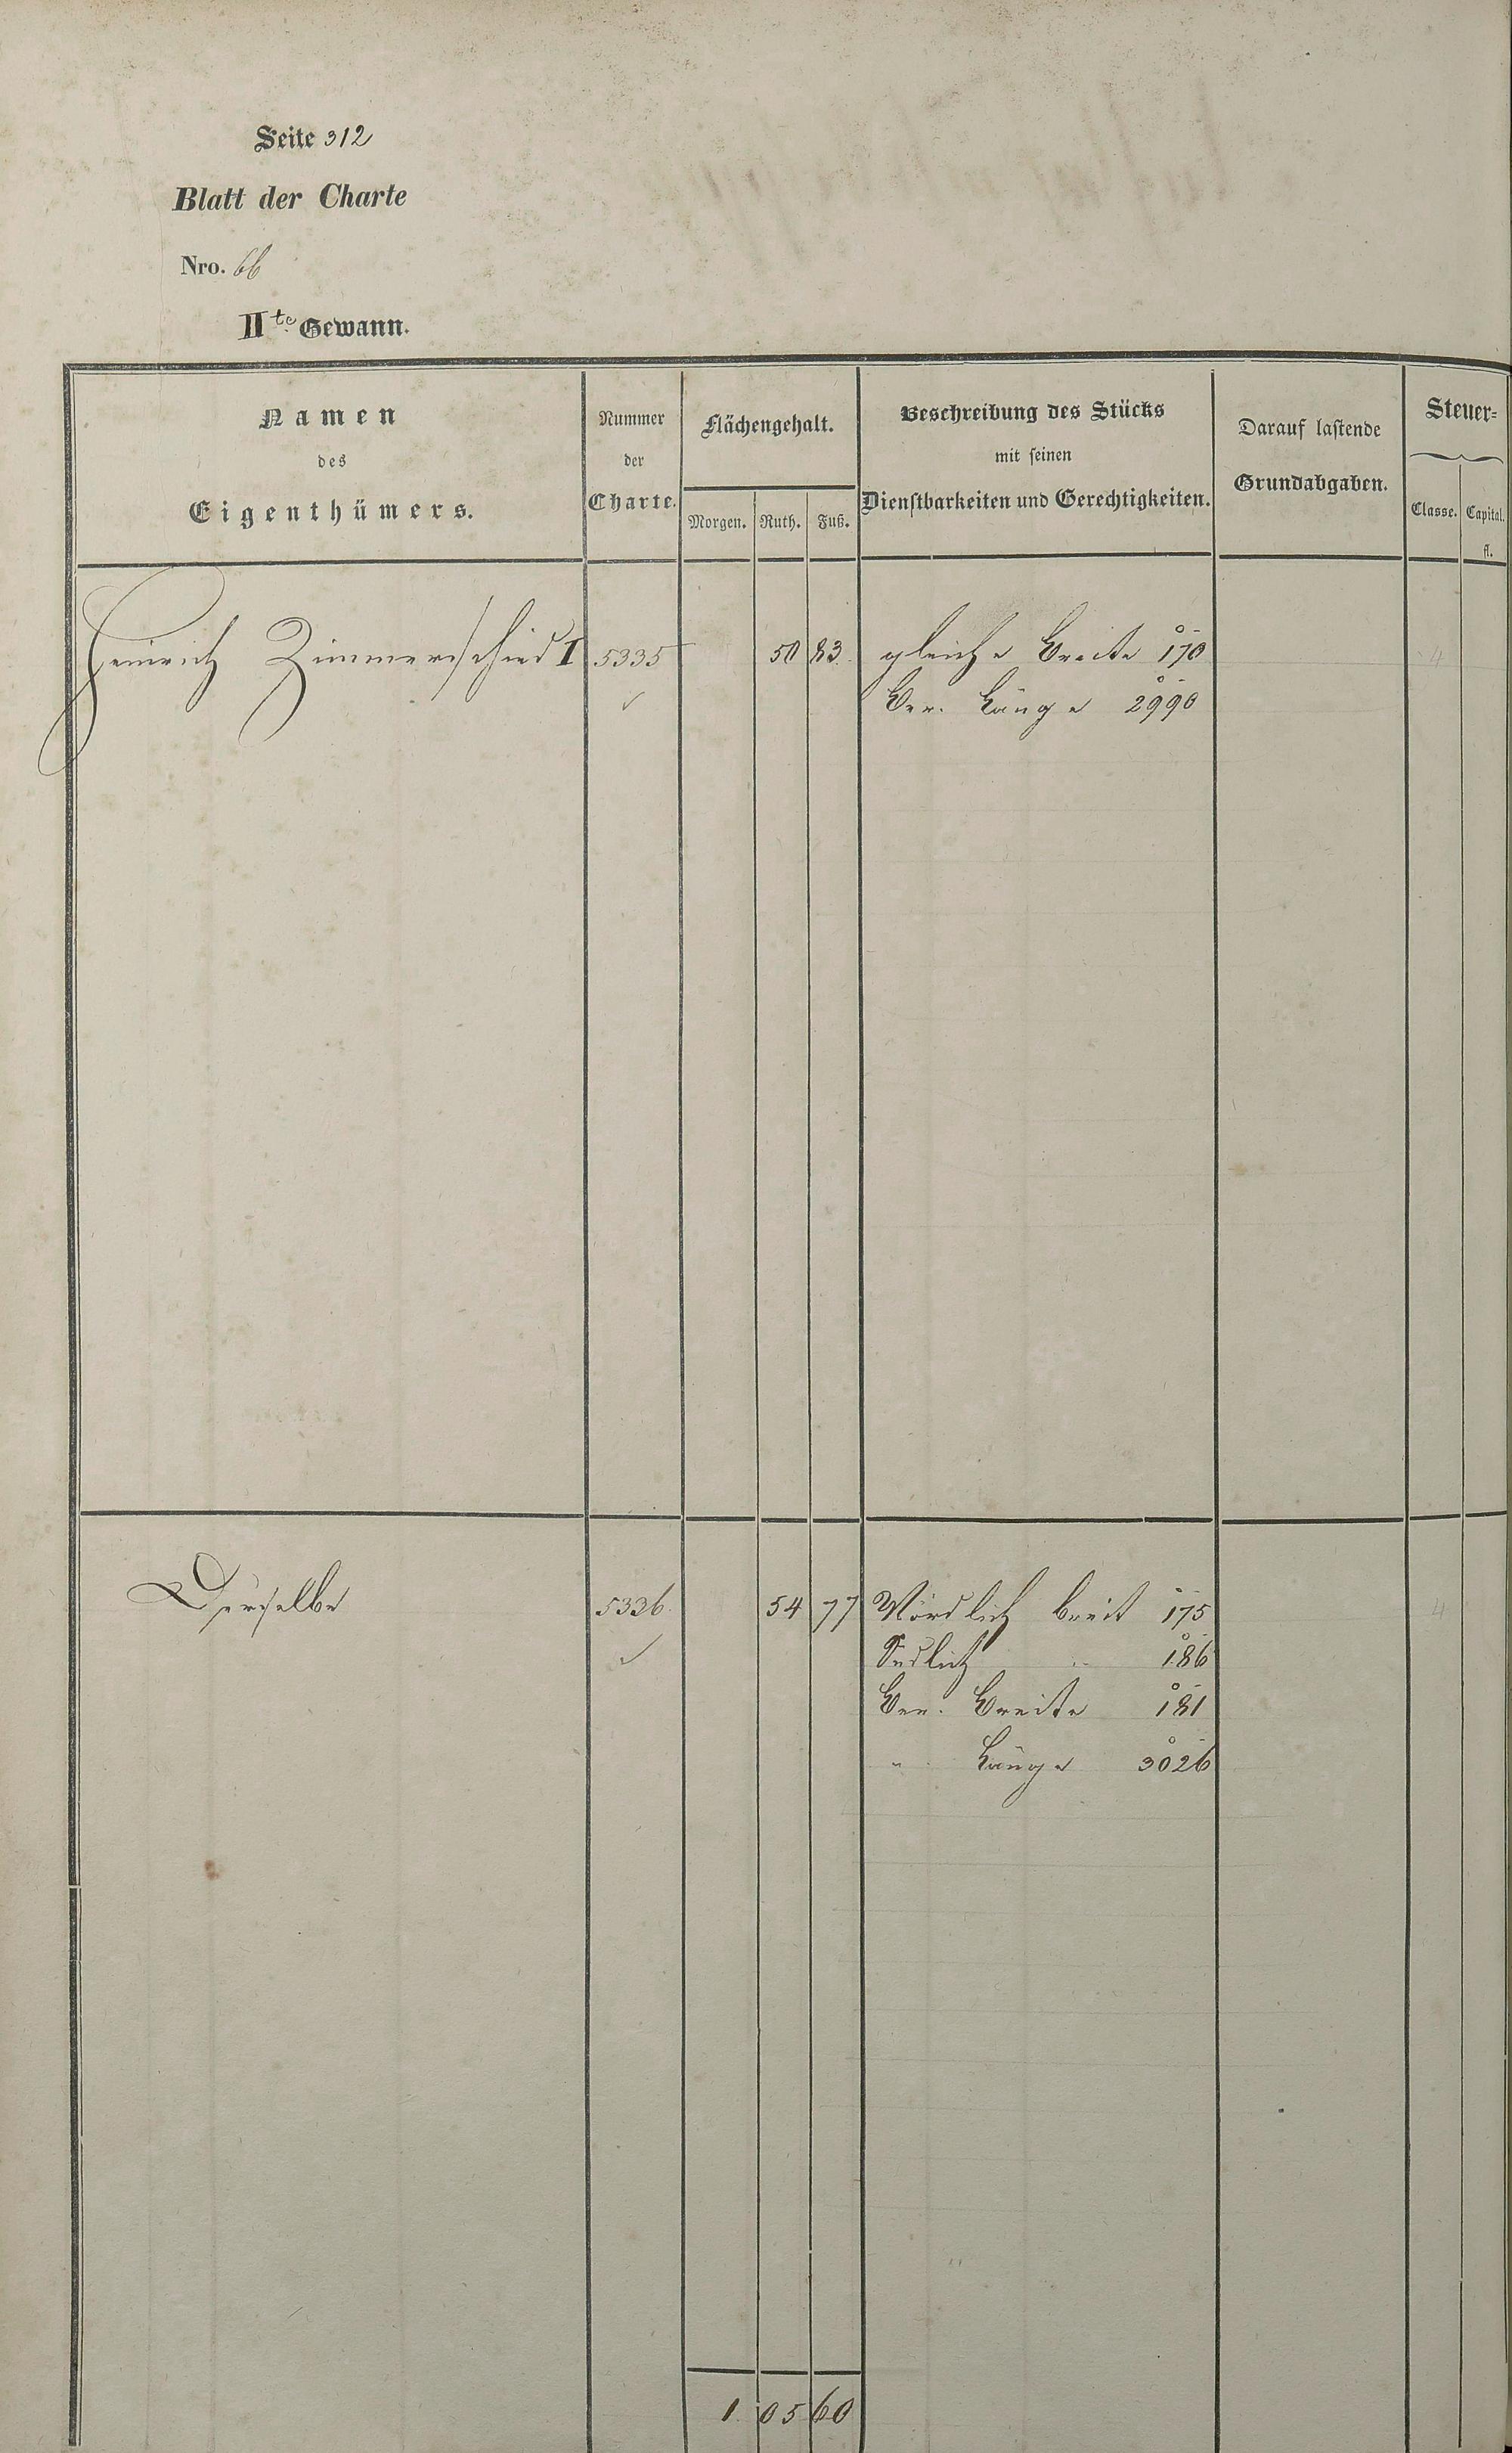 Seite 312
Blatt der Charte
Nro. 66
II te Gewann.
Namen des Eigenthümers.
Nummer der Charte.
Flächengehalt.
Morgen. Ruth. Fuß.
Beschreibung des Stücks mit seinen Dienstbarkeiten und Gerechtigkeiten.
Darauf lastende Grundabgaben.
Steuer-
Classe. Capital.
fl.
Heinrich Zimmerschied I 5335 50 83 gleiche Breite 170 4
Ber. Länge 2990
Derselbe 5336 54 77 Nördlich breit 175 4
Südlich " 186
Ber. Breite 181
" Länge 3026
1 05 60